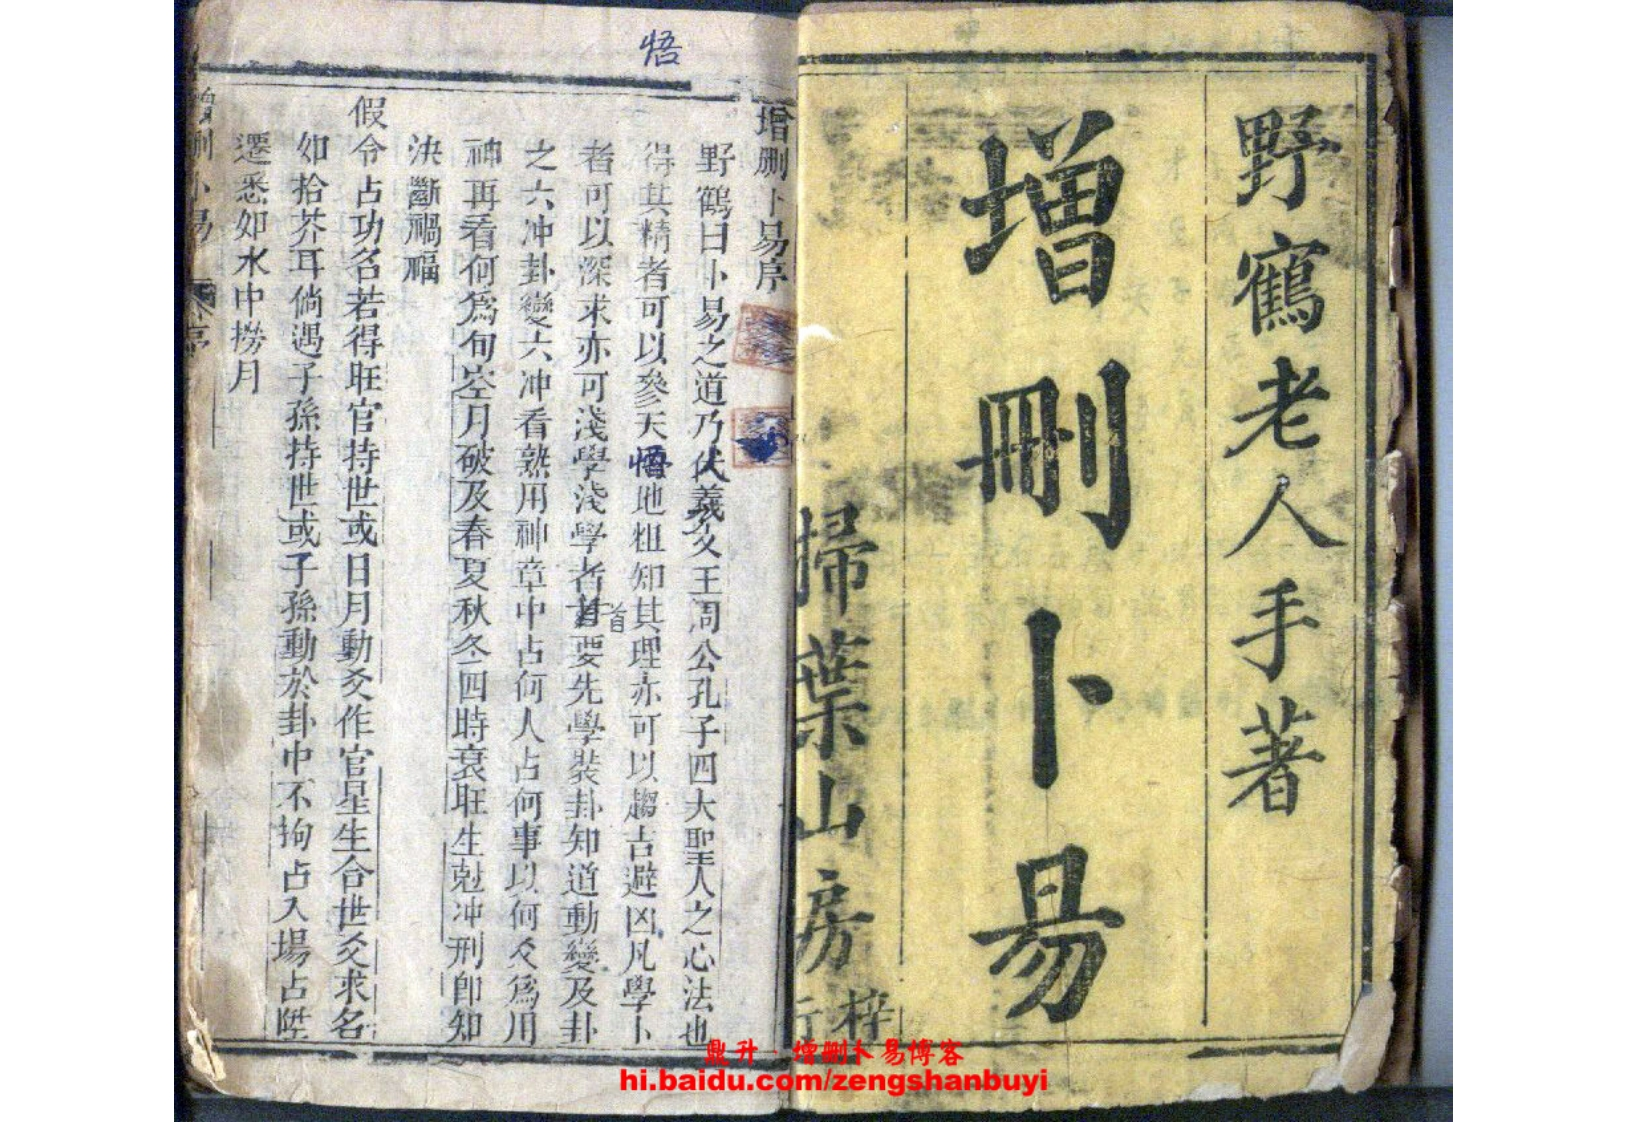 野鶴老人手著
增刪卜易
掃葉山房
梓行
增刪卜易序
野鶴曰卜易之道乃伏羲文王周公孔子四大聖人之心法也
得其精者可以參天悟地粗知其理亦可以趨吉避凶凡學卜
者可以深求亦可淺學淺學者首要先學裝卦知道動變及卦
之六冲卦變六冲看熟用神章中占何人占何事以何爻爲用
神再看何爲旬空月破及春夏秋冬四時衰旺生尅冲刑即知
決斷禍福
假令占功名若得旺官持世或日月動爻作官星生合世爻求名
如拾芥耳倘遇子孫持世或子孫動於卦中不拘占入場占陞
遷悉如水中撈月
增刪卜易
序
悟
首
鼎升-增删卜易博客
hi.baidu.com/zengshanbuyi